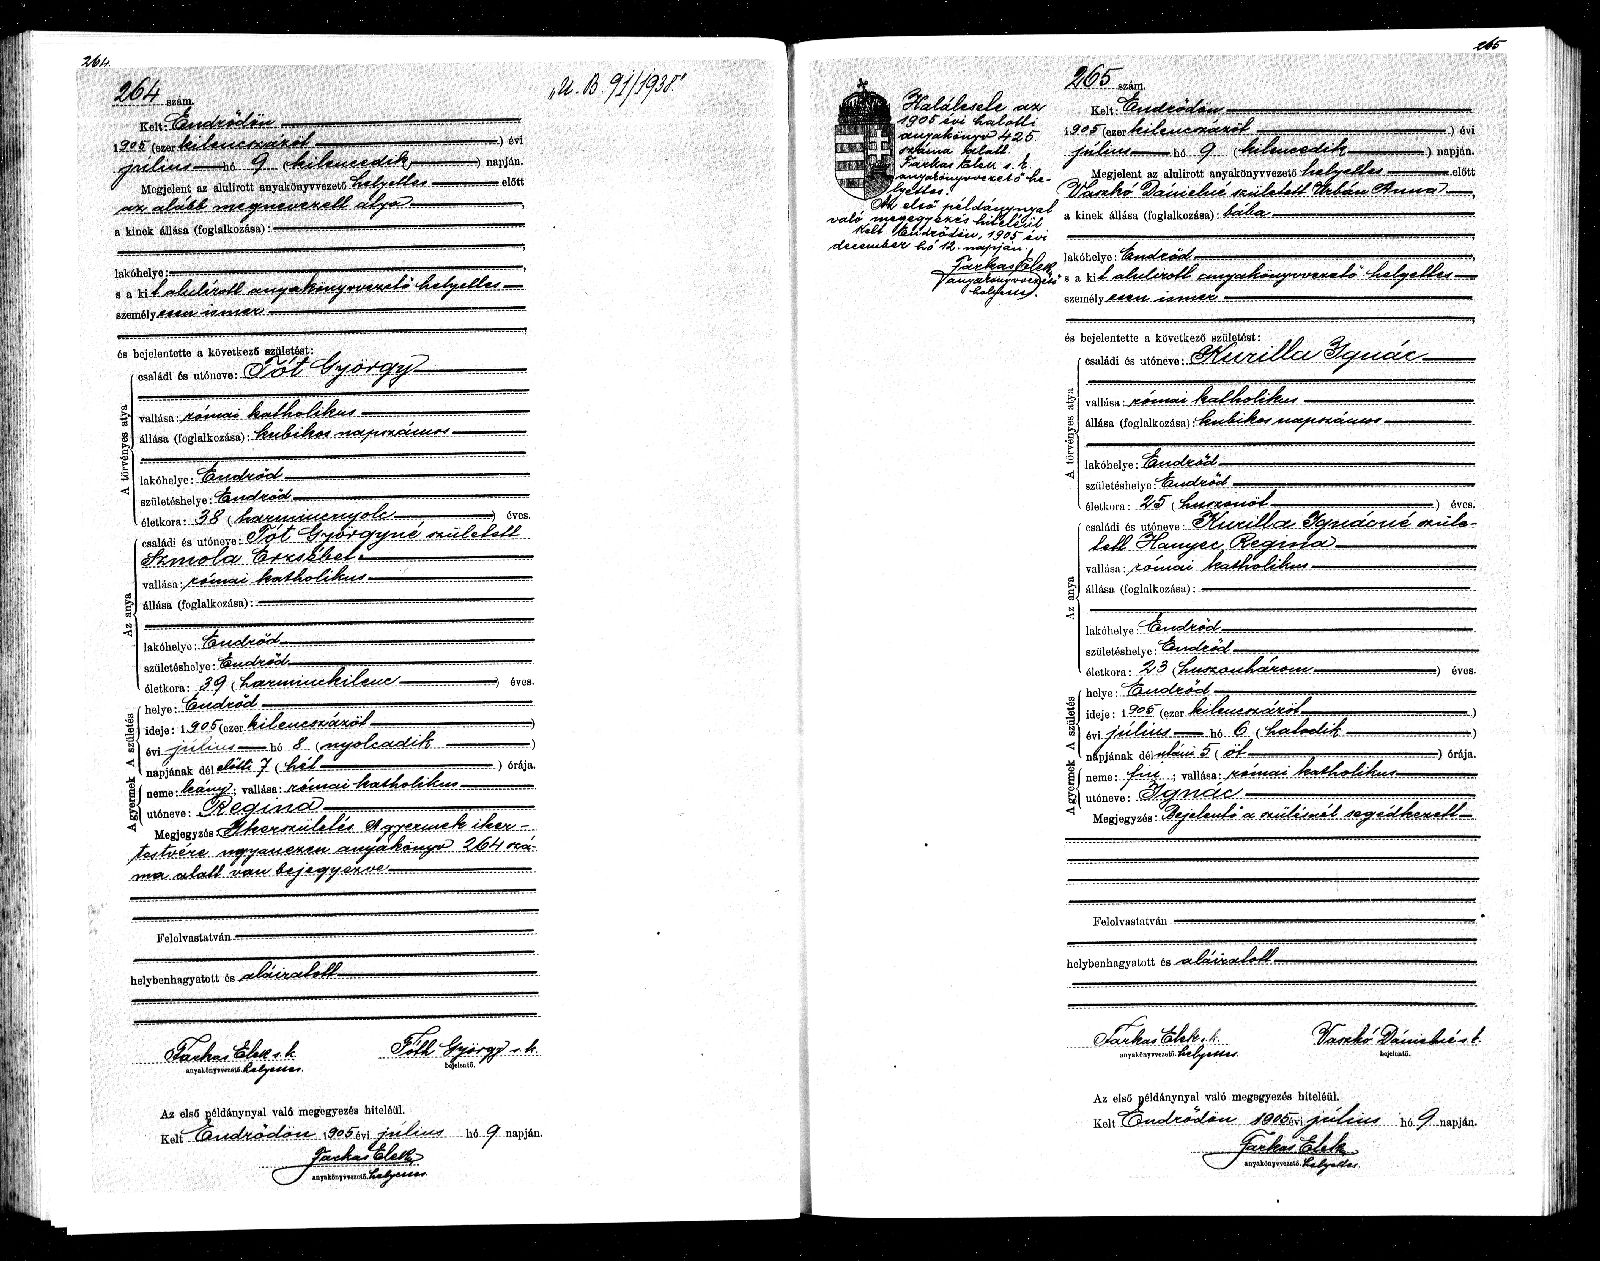 264.
264 szám.
„U. B 91/1938."
Kelt: Endrődön
1905 (ezer kilencszázöt) évi
július hó 9 (kilencedik) napján.
Megjelent az alulírott anyakönyvvezető helyettes előtt
az alább megnevezett atya
a kinek állása (foglalkozása):
lakóhelye:
s a kit alulírott anyakönyvvezető helyettes
személyesen ismer
és bejelentette a következő születést:
A törvényes atya
családi és utóneve: Tót György
vallása: római katholikus
állása (foglalkozása): kubikos napszámos
lakóhelye: Endrőd
születéshelye: Endrőd
életkora: 38 (harmincnyolc) éves.
Az anya
családi és utóneve: Tót Györgyné született
Szmola Erzsébet
vallása: római katholikus
állása (foglalkozása):
lakóhelye: Endrőd
születéshelye: Endrőd
életkora: 39 (harminckilenc) éves.
A születés
helye: Endrőd
ideje: 1905 (ezer kilencszázöt)
évi július hó 8 (nyolcadik)
napjának dél előtti 7 (hét) órája.
A gyermek
neme: leány; vallása: római katholikus
utóneve: Regina
Megjegyzés: Ikerszületés A gyermek iker-
testvére ugyanezen anyakönyv 264 szá-
ma alatt van bejegyezve
Felolvastatván
helybenhagyatott és aláíratott
Farkas Elek s. k.
anyakönyvvezető helyettes.
Tóth György s. k.
bejelentő.
Az első példánynyal való megegyezés hiteléül.
Kelt Endrődön 1905 évi július hó 9 napján.
Farkas Elek
anyakönyvvezető helyettes
265
265 szám.
Halálesete az
1905 évi halotti
anyakönyv 425
száma alatt.
Farkas Elek s. k.
anyakönyvvezető he-
lyettes.
Az első példánynyal
való megegyezés hiteléül
Kelt Endrődön, 1905 évi
december hó 12. napján.
Farkas Elek
anyakönyvvezető
helyettes.
Kelt: Endrődön
1905 (ezer kilencszázöt) évi
július hó 9 (kilencedik) napján.
Megjelent az alulírott anyakönyvvezető helyettes előtt
Vaszkó Dánielné született Urbán Anna
a kinek állása (foglalkozása): bába
lakóhelye: Endrőd
s a kit alulírott anyakönyvvezető helyettes
személyesen ismer
és bejelentette a következő születést:
A törvényes atya
családi és utóneve: Kurilla Ignác
vallása: római katholikus
állása (foglalkozása): kubikos napszámos
lakóhelye: Endrőd
születéshelye: Endrőd
életkora: 25 (huszonöt) éves.
Az anya
családi és utóneve: Kurilla Ignácné szüle-
tett Hanyec Regina
vallása: római katholikus
állása (foglalkozása):
lakóhelye: Endrőd
születéshelye: Endrőd
életkora: 23 (huszonhárom) éves.
A születés
helye: Endrőd
ideje: 1905 (ezer kilencszázöt)
évi július hó 6 (hatodik)
napjának dél utáni 5 (öt) órája.
A gyermek
neme: fiú; vallása: római katholikus
utóneve: Ignác
Megjegyzés: Bejelentő a szülésnél segédkezett
Felolvastatván
helybenhagyatott és aláíratott
Farkas Elek s. k.
anyakönyvvezető helyettes.
Vaszkó Dánielné s. k.
bejelentő.
Az első példánynyal való megegyezés hiteléül.
Kelt Endrődön 1905 évi július hó 9 napján.
Farkas Elek
anyakönyvvezető helyettes.